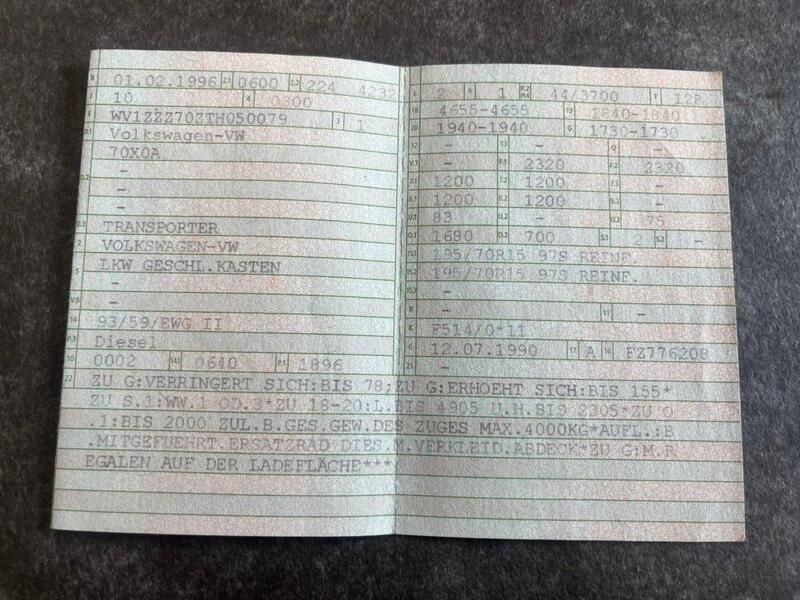 B 01.02.1996 2.1 0600 2.2 224 4232
J 10 4 0300
E WV1ZZZ70ZTH050079 3 1
D.1 Volkswagen-VW
70X0A
D.2 –
–
–
D.3 TRANSPORTER
2 VOLKSWAGEN-VW
5 LKW GESCHL.KASTEN
–
V.9 –
14 93/59/EWG II
P.3 Diesel
10 0002 14.1 0640 P.1 1896
L 2 9 1 P.2 P.4 44/3700 T 128
18 4655-4655 19 1840-1840
20 1940-1940 G 1730-1730
12 – 13 – Q –
V.7 – F.1 2320 F.2 2320
7.1 1200 7.2 1200 7.3 –
8.1 1200 8.2 1200 8.3 –
U.1 83 U.2 – U.3 75
O.1 1680 O.2 700 S.1 2 S.2 –
15.1 195/70R15 97S REINF.
15.2 195/70R15 97S REINF.
15.3 –
R – 11 –
K F514/0*11
6 12.07.1990 17 A 16 FZ776208
21 –
22 ZU G:VERRINGERT SICH:BIS 78;ZU G:ERHOEHT SICH:BIS 155*
ZU S.1:WW.1 OD.3*ZU 18-20:L.BIS 4905 U.H.BIS 2305*ZU O
.1:BIS 2000 ZUL.B.GES.GEW.DES ZUGES MAX.4000KG*AUFL.:B
.MITGEFUEHRT.ERSATZRAD DIES.M.VERKLEID.ABDECK*ZU G:M.R
EGALEN AUF DER LADEFLÄCHE***